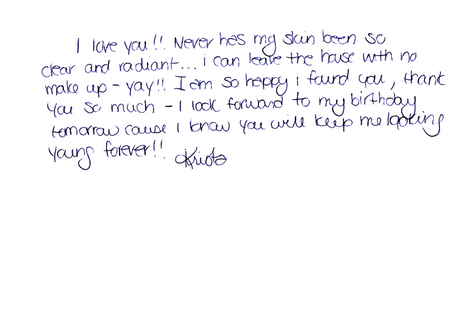 I love you!! Never has my skin been so
clear and radiant... i can leave the house with no
make up - yay!! I am so happy i found you, thank
you so much - I look forward to my birthday
tomorrow cause I know you will keep me looking
young forever!! Krista